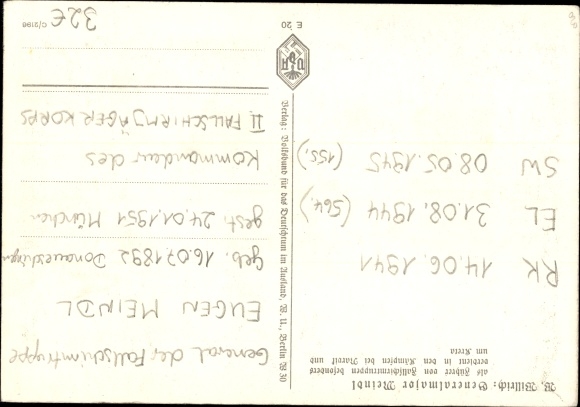 W. Willrich: Generalmajor Meindl
als Führer von Fallschirmtruppen besonders
verdient in den Kämpfen bei Narvik und
um Kreta
RK 14.06.1941
EL 31.08.1944 (564.)
SW 08.05.1945 (155.)
Verlag: Volksbund für das Deutschtum im Ausland, W. U., Berlin W 30
General der Fallschirmtruppe
EUGEN MEINDL
geb. 16.07.1892 Donaueschingen
gest. 24.01.1951 München
Kommandeur des
II FALLSCHIRMJÄGER KORPS
VDA
E 20
32€
C/2186